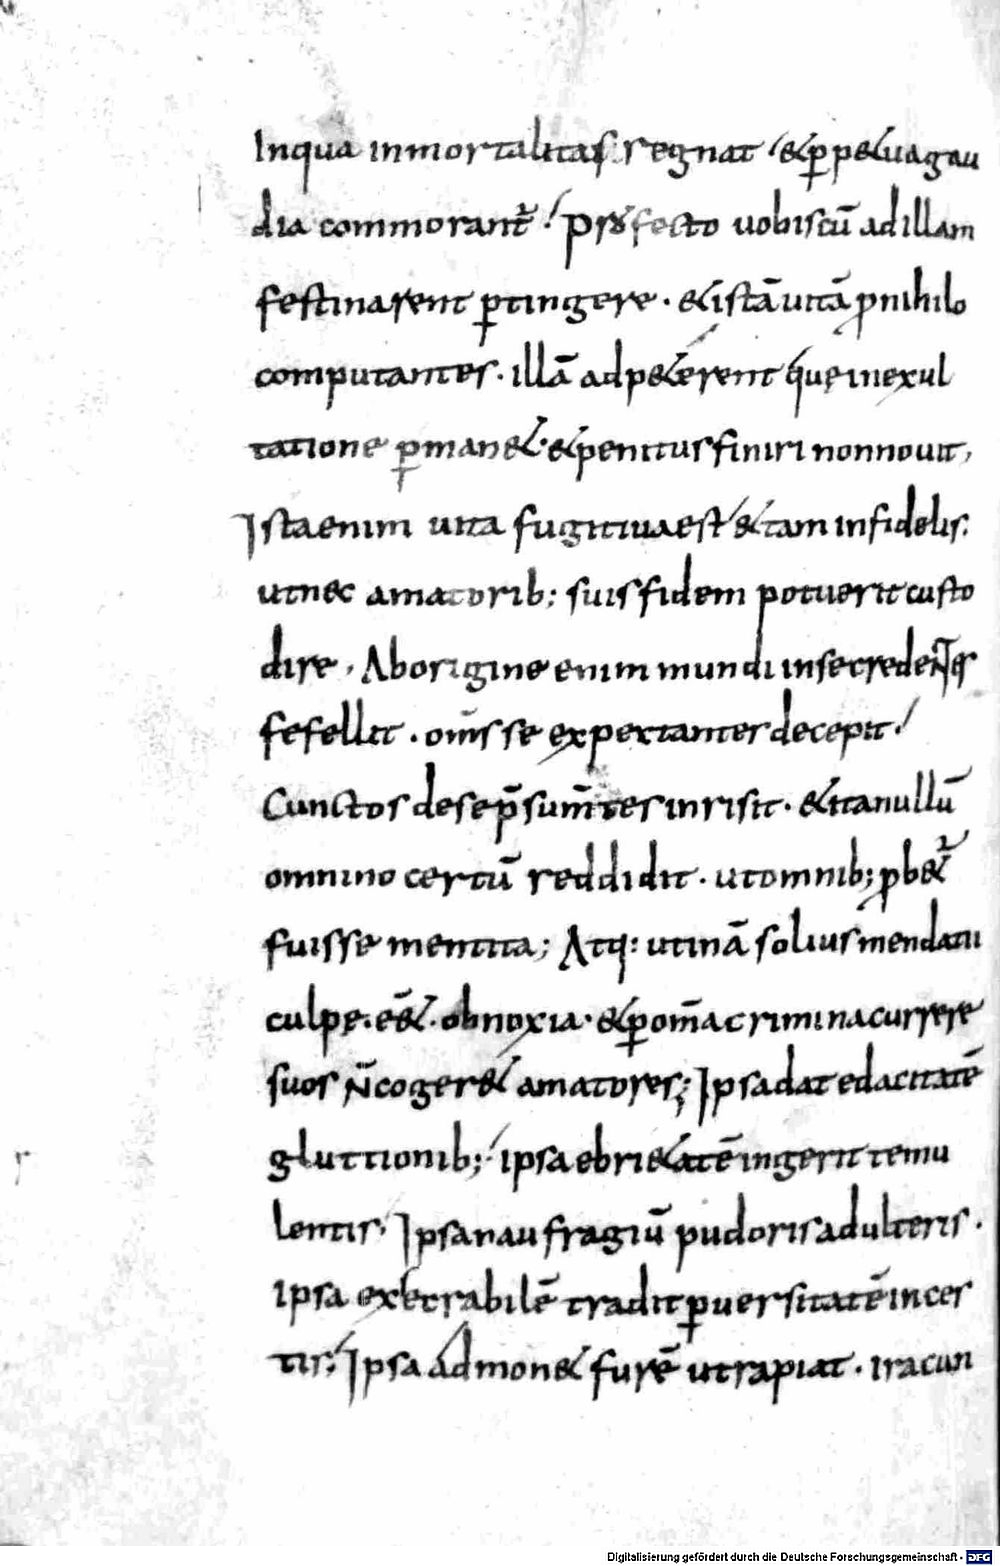 Inqua inmortalitas regnat &p̱p&uagau
dia commorant᷑ p̱fecto uobiscū adillam
festinarent p̱tingere · &istāuitā ꝓnihilo
computantes · illā adp&erent quęinexul
tatione p̱man& · &penitusfiniri nonnouit,
Istaenim uita fugitiuaest &tam infidelis:
utnec amatorib; suisfidem potueritcusto
dire, Aborigine enim mundi insecredentes
fefellit · om̄sse expectantesdecepit
Cunctos desep̄sum̄tesinrisit · &itanullū
omnino certū reddidit · utomnib; ꝓb&᷑
fuisse mentita; Atq: utinā soliusmendatii
culpę · eē& · obnoxia · &p̱om̄acriminacurrere
suos n̄coger& amatores; Ipsadatedacitatē
gluttionib; ipsaebri&atē ingerit temu
lentis, Ipsanaufragiū pudorisadulteris ·
ipsa execrabilē tradit p̱uersitatē inces
tis; Ipsa admon& furē utrapiat · iracun
Digitalisierung gefördert durch die Deutsche Forschungsgemeinschaft - DFG